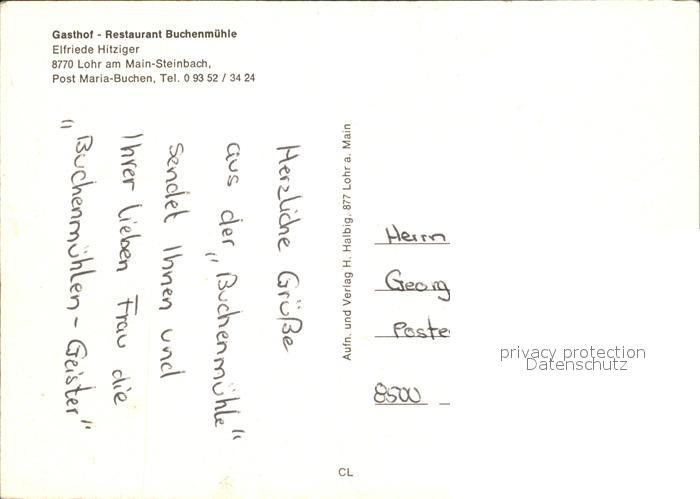 Gasthof - Restaurant Buchenmühle
Elfriede Hitziger
8770 Lohr am Main-Steinbach,
Post Maria-Buchen, Tel. 0 93 52 / 34 24
Herzliche Grüße
aus der „Buchenmühle“
sendet Ihnen und
Ihrer lieben Frau die
„Buchenmühlen - Geister“
Aufn. und Verlag H. Halbig, 877 Lohr a. Main
Herrn
Georg
Poste
8500
privacy protection
Datenschutz
CL